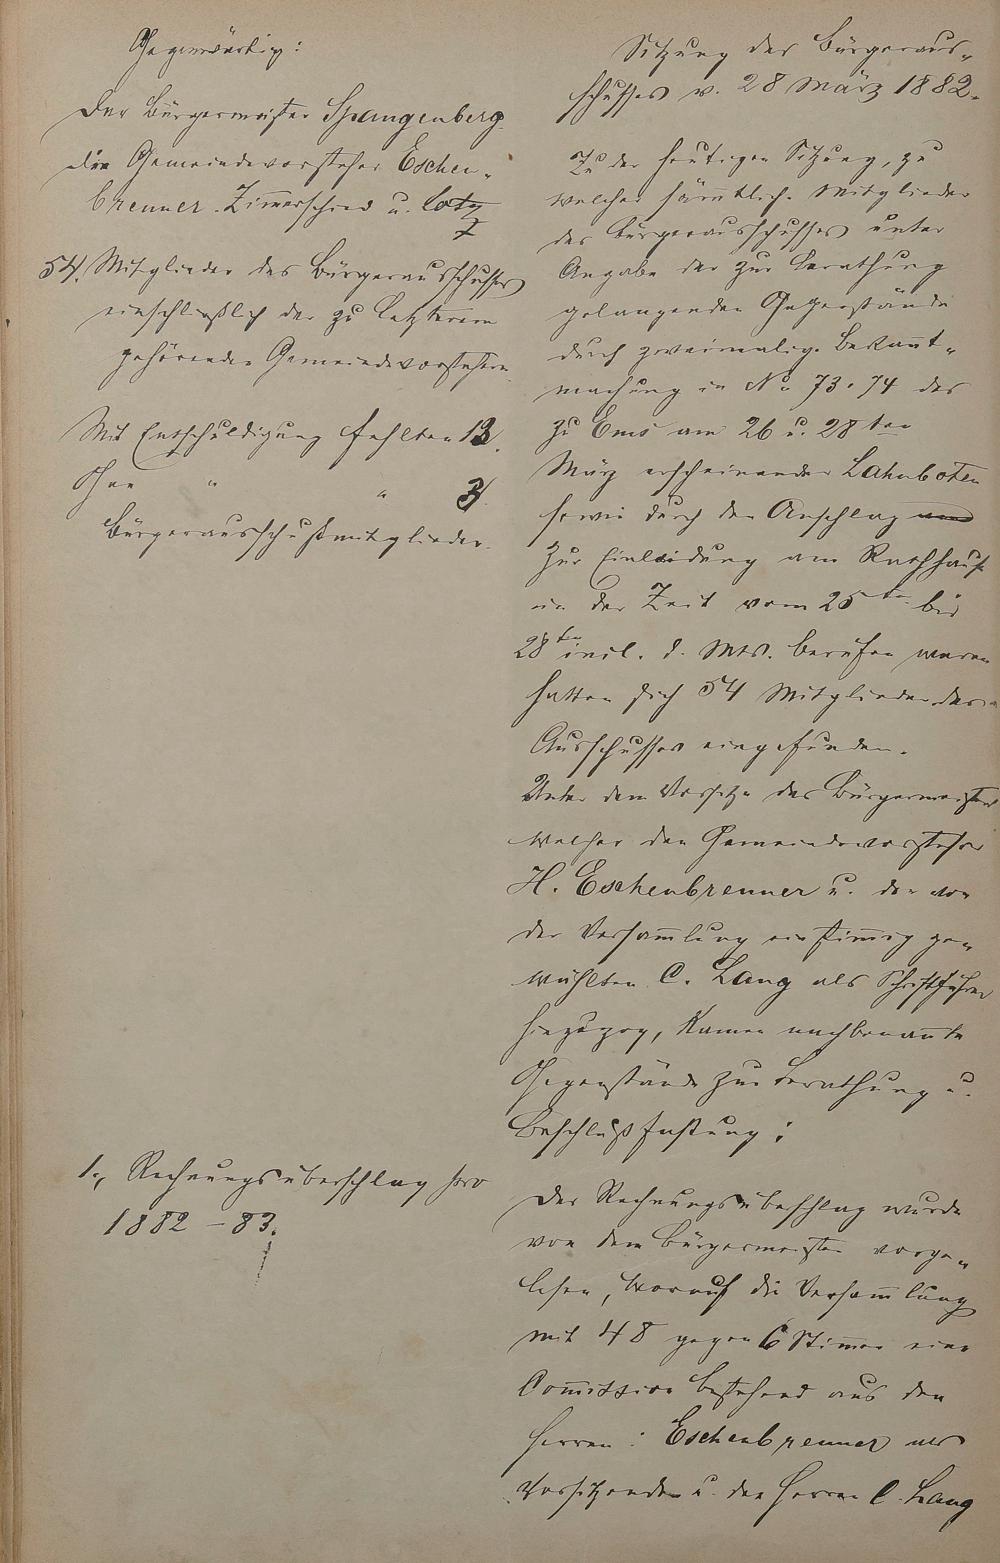 Gegenwärtig:
Der Bürgermeister Spangenberg
die Gemeindevorsteher Eschen-
brenner. Zimerschied u. Lotz
54. Mitglieder des Bürgerausschusses
einschließlich der zu Letzterem
gehörenden Gemeindevorsteher
Mit Entschuldigung fehlten 13.
Ohne " " 3
Bürgerausschußmitglieder.
1., Rechnungsüberschlag pro
1882-83.
Sitzung des Bürgeraus-
schusses v. 28 März 1882.
Zu der heutigen Sitzung, zu
welcher sämtliche Mitglieder
des Bürgerausschusses unter
Angabe der zur Berathung
gelangenden Gegenstände
durch zweimalige Bekannt-
machung in No 73. 74 des
zu Ems am 26 u. 28ten
März erscheinenden Lahnboten
sowie durch den Anschlag
zur Einladung am Rathhause
in der Zeit vom 25ten bis
28ten incl. d. Mts. berufen waren
hatten sich 54 Mitglieder des
Ausschusses eingefunden.
Unter dem Vorsitze des Bürgermeisters
welcher den Gemeindevorsteher
H. Eschenbrenner u. den von
der Versamlung einstimig ge-
wählten C. Lang als Schriftführer
hinzuzog, kamen nachbenannte
Gegenstände zur Berathung u.
Beschlußfassung:
Der Rechnungsüberschlag wurde
von dem Bürgermeister vorge-
lesen, worauf die Versamlung
mit 48 gegen 6 Stimen eine
Comission bestehend aus den
Herren: Eschenbrenner als
Vorsitzenden u. den Herren C. Lang